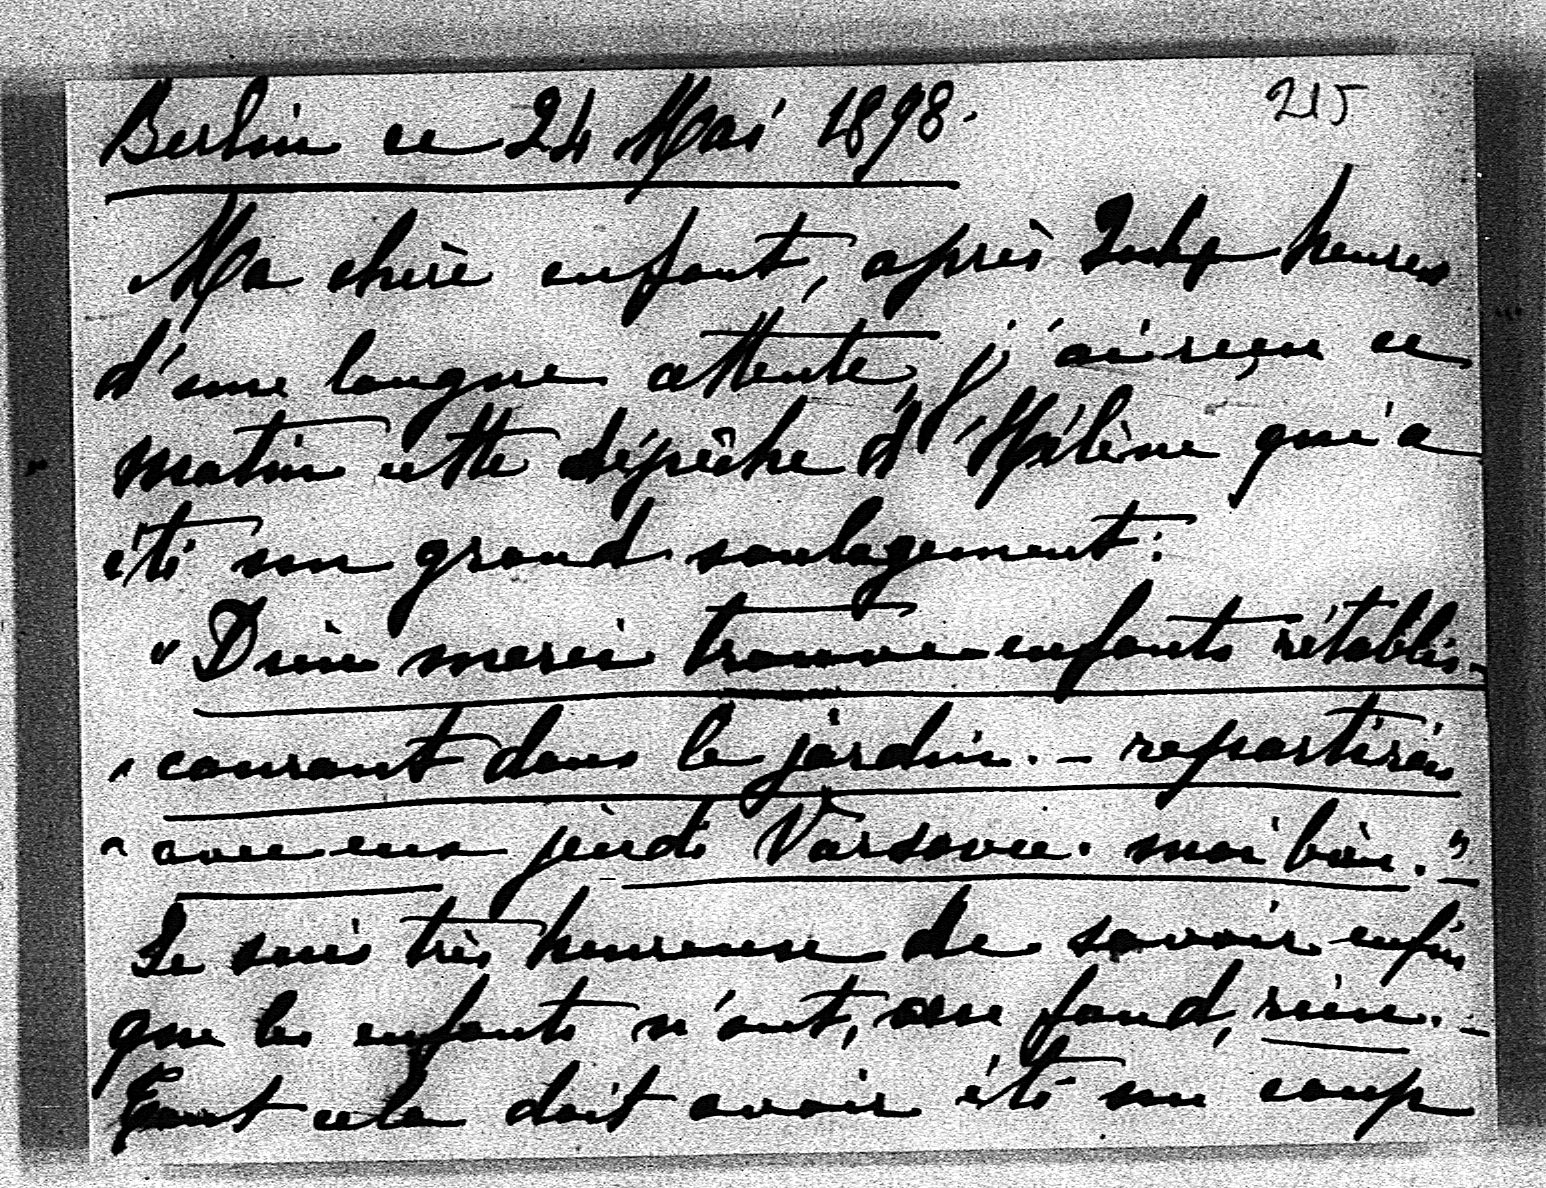 215
Berlin ce 24 Mai 1898.
Ma chère enfant, après 24 heures
d'une longue attente, j'ai reçu ce
matin cette dépêche d'Hélène qui a
été un grand soulagement:
"Dieu merci trouvé enfants rétablis -
" courant dans le jardin. - repartirai
" avec eux jeudi Varsovie. moi bien."
Je suis très heureuse de savoir enfin
que les enfants n'ont, au fond, rien. -
Tout cela doit avoir été un coup